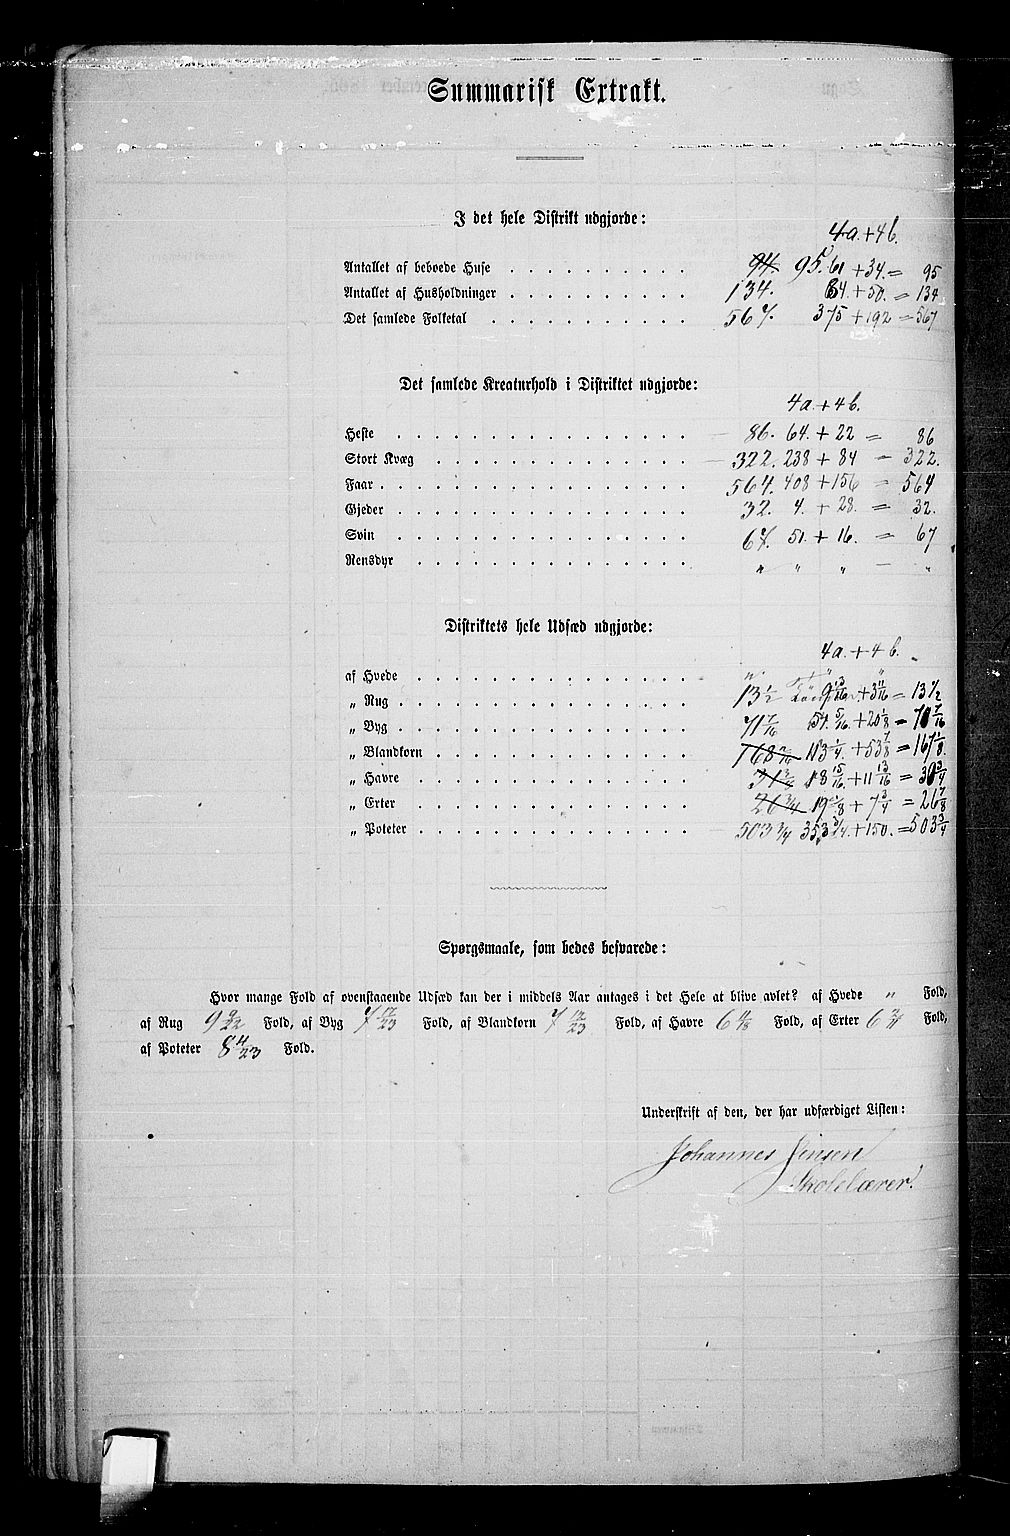 Summarisk Extrakt.
I det hele Distrikt udgjorde:
4a. + 4b.
Antallet af beboede Huse . . . . . . . . . . 94 95. 61 + 34. = 95
Antallet af Husholdninger . . . . . . . . . . 134. 84. + 50. = 134
Det samlede Folketal . . . . . . . . . . . 567. 375 + 192 = 567
Det samlede Kreaturhold i Distriktet udgjorde:
4a. + 4b.
Heste . . . . . . . . . . . . . . . . 86. 64. + 22 = 86
Stort Kvæg . . . . . . . . . . . . . . 322. 238 + 84 = 322.
Faar . . . . . . . . . . . . . . . . . 564. 408 + 156 = 564
Gjeder . . . . . . . . . . . . . . . . 32. 4. + 28. = 32.
Svin . . . . . . . . . . . . . . . . 67. 51. + 16. = 67
Rensdyr . . . . . . . . . . . . . . . „ „ „ — „
Distriktets hele Udsæd udgjorde:
4a. + 4b.
af Hvede . . . . . . . . . . . . . . . „ „ „
„ Rug . . . . . . . . . . . . . . . . 13 1/2 9 13/16 + 3 11/16 = 13 1/2
„ Byg . . . . . . . . . . . . . . . . 71 7/16 5/16. + 20 1/8 = 7/16
„ Blandkorn . . . . . . . . . . . . . . 113 1/4. + 53 7/8 = 167 1/8.
„ Havre . . . . . . . . . . . . . . . 31 3/4 18 15/16. + 11 13/16 = 30 3/4
„ Erter . . . . . . . . . . . . . . . 26 3/4 19 1/8 + 7 3/4 = 26 7/8
„ Poteter . . . . . . . . . . . . . . 503 3/4 353 3/4. + 150. = 503 3/4
Spørgsmaale, som bedes besvarede:
Hvor mange Fold af ovenstaaende Udsæd kan der i middels Aar antages i det Hele at blive avlet? af Hvede „ Fold,
af Rug 9 9/22 Fold, af Byg 7 12/23 Fold, af Blandkorn 7 12/23 Fold, af Havre 6 11/18 Fold, af Erter 6 2/11 Fold,
af Poteter 8 11/23 Fold.
Underskrift af den, der har udfærdiget Listen:
Johannes Jensen
Skolelærer.